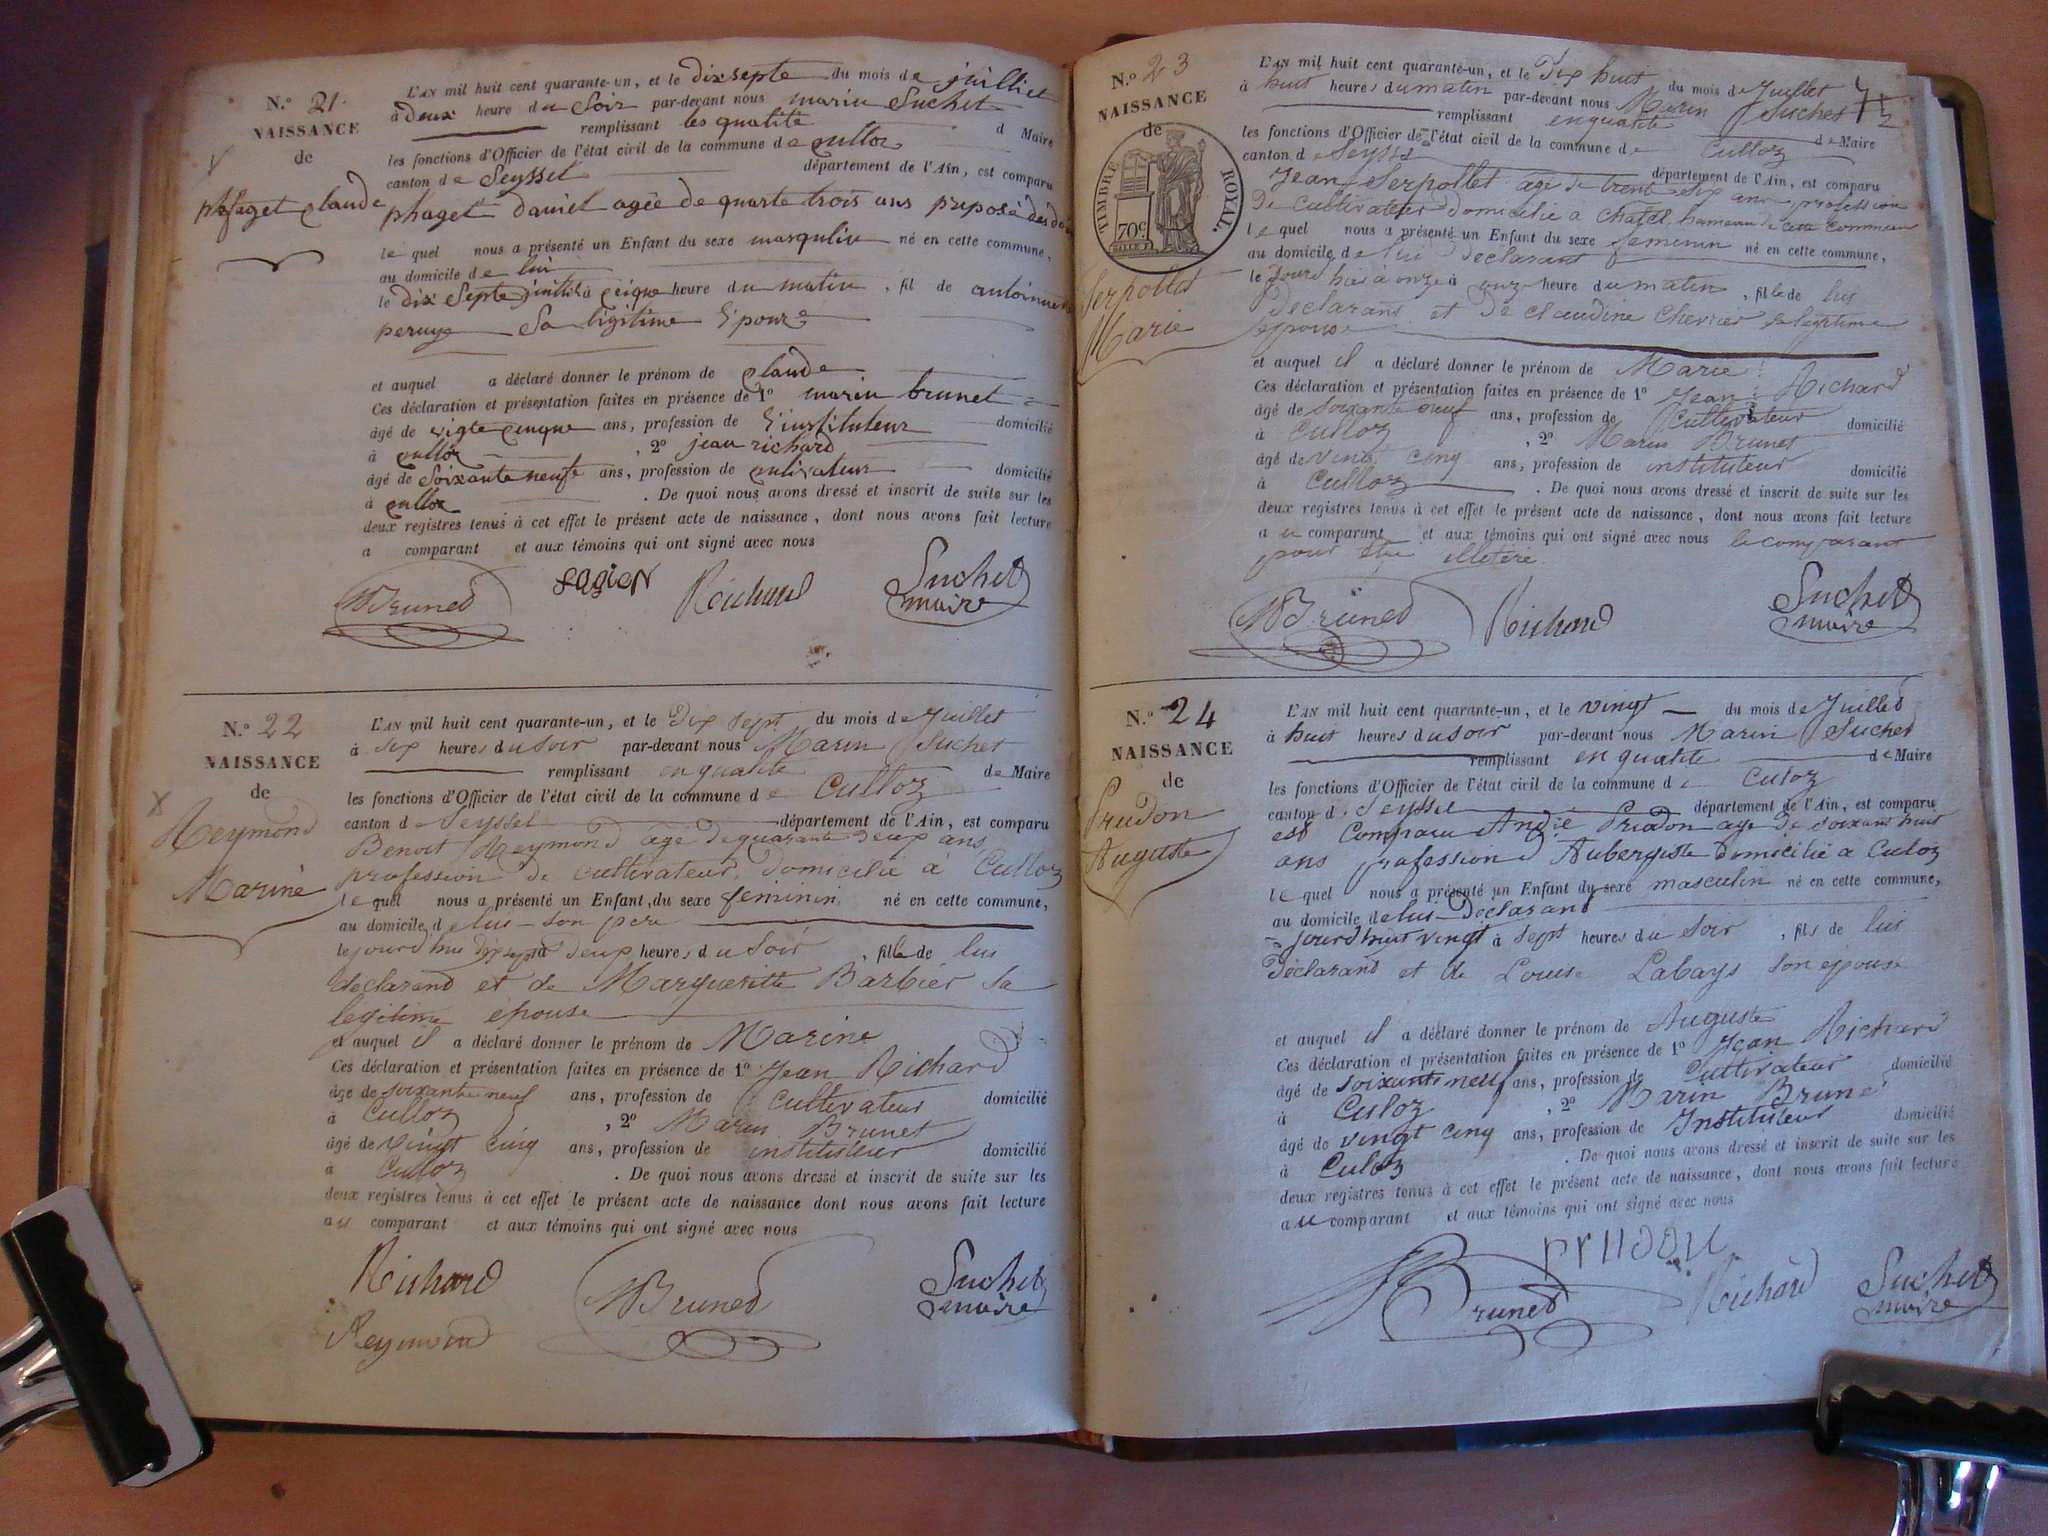 N.o 21.
NAISSANCE
de
phaget claude
L'AN mil huit cent quarante-un, et le dix septe du mois de juilliet
à deux heure du Soir par-devant nous marin Suchet
remplissant les qualité d Maire
les fonctions d'Officier de l'état civil de la commune de culloz
canton de Seyssel département de l'Ain, est comparu
phaget daniel agée de quarte trois ans préposé des
le quel nous a présenté un Enfant du sexe masquliu né en cette commune,
au domicile de lui
le dix Septe juillet à cique heure du matin, fil de antoinette
peruye Sa légitime épouze
et auquel a déclaré donner le prénom de claude
Ces déclaration et présentation faites en présence de 1o marin brunet
âgé de vigte cinque ans, profession de l'instituteur domicilié
à culloz, 2o jean richard
âgé de Soixante neufe ans, profession de cultivateur domicilié
à culloz. De quoi nous avons dressé et inscrit de suite sur les
deux registres tenus à cet effet le présent acte de naissance, dont nous avons fait lecture
a comparant et aux témoins qui ont signé avec nous
MBrunet Richard Suchet
maire
N.o 22
NAISSANCE
de
Reymond
Marine
L'AN mil huit cent quarante-un, et le Dix sept du mois de Juillet
à six heures du soir par-devant nous Marin Suchet
remplissant en qualité de Maire
les fonctions d'Officier de l'état civil de la commune de Culloz
canton de Seyssel département de l'Ain, est comparu
Benoit Reymond âgé de quarante deux ans
profession de cultivateur, domicilié à Culloz
le quel nous a présenté un Enfant du sexe feminin né en cette commune,
au domicile de lui son pere
le jourd'hui dix sept à deux heures du Soir, fille de lui
declarand et de Margueritte Barbier sa
legitime épouse
et auquel il a déclaré donner le prénom de Marine
Ces déclaration et présentation faites en présence de 1o Jean Richard
âgé de soixante neuf ans, profession de Cultivateur domicilié
à Culloz, 2o Marin Brunet
âgé de vingt cinq ans, profession de instituteur domicilié
à Culloz. De quoi nous avons dressé et inscrit de suite sur les
deux registres tenus à cet effet le présent acte de naissance dont nous avons fait lecture
au comparant et aux témoins qui ont signé avec nous
Richard MBrunet Suchet
maire
Reymond
N.o 23
NAISSANCE
de
TIMBRE ROYAL.
70c
Serpollet
Marie
L'AN mil huit cent quarante-un, et le Dix huit du mois de Juillet
à huit heures du matin par-devant nous Marin Suchet
remplissant en qualité de Maire
les fonctions d'Officier de l'état civil de la commune de Culloz
canton de Seyssel département de l'Ain, est comparu
Jean Serpollet agé de trente six ans profession
De Cultivateur domicilié a Chatel hameau de cette Commune
le quel nous a présenté un Enfant du sexe femenin né en cette commune,
au domicile de lui Declarant
le Jourd'hui à onze à onze heure du matin, fille de lui
Declarans et De Claudine Cherrier sa legitime
epouse
et auquel il a déclaré donner le prénom de Marie
Ces déclaration et présentation faites en présence de 1o Jean Richard
âgé de Soixante neuf ans, profession de Cultivateur domicilié
à Culloz, 2o Marin Brunet
âgé de vingt cinq ans, profession de instituteur domicilié
à Culloz. De quoi nous avons dressé et inscrit de suite sur les
deux registres tenus à cet effet le présent acte de naissance, dont nous avons fait lecture
au comparant et aux témoins qui ont signé avec nous le comparant
pour être illetéré
MBrunet Richard Suchet
maire
N.o 24
NAISSANCE
de
Prudon
Auguste
L'AN mil huit cent quarante-un, et le vingt du mois de Juillet
à huit heures du soir par-devant nous Marin Suchet
remplissant en qualité de Maire
les fonctions d'Officier de l'état civil de la commune de Culoz
canton de Seyssel département de l'Ain, est comparu
est Comparu André Prudon age de soixant huit
ans profession d'Aubergiste domicilié a Culoz
le quel nous a présenté un Enfant du sexe masculin né en cette commune,
au domicile de lui Déclarant
jourd'huit vingt à sept heures du Soir, fils de lui
Déclarand et de Louise Labays son épouse
et auquel il a déclaré donner le prénom de Auguste
Ces déclaration et présentation faites en présence de 1o Jean Richard
âgé de soixante neuf ans, profession de Cultivateur domicilié
à Culoz, 2o Marin Brunet
âgé de vingt cinq ans, profession de Instituteur domicilié
à Culoz. De quoi nous avons dressé et inscrit de suite sur les
deux registres tenus à cet effet le présent acte de naissance, dont nous avons fait lecture
au comparant et aux témoins qui ont signé avec nous
prudon
Brunet Richard Suchet
maire